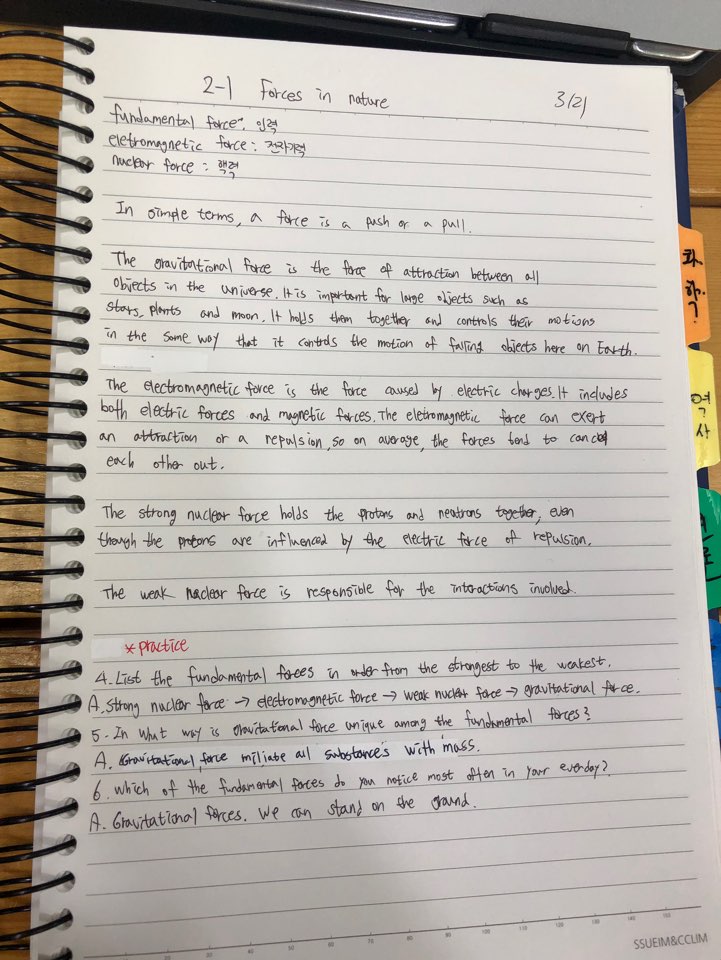 2-1 Forces in nature 3/21
fundamental force: 인력
eletromagnetic force: 전자기력
nuclear force : 핵력
In simple terms, a force is a push or a pull.
The gravitational force is the force of attraction between all
objects in the universe. It is important for large objects such as
stars, plants and moon. It holds them together and controls their motions
in the same way that it controls the motion of falling objects here on Earth.
The electromagnetic force is the force caused by electric charges. It includes
both electric forces and magnetic forces. The eletromagnetic force can exert
an attraction or a repulsion, so on average, the forces tend to cancel
each other out.
The strong nuclear force holds the protons and neutrons together, even
though the protons are influenced by the electric force of repulsion.
The weak nuclear force is responsible for the interactions involved.
*practice
4. List the fundamental forces in order from the strongest to the weakest.
A. Strong nuclear force → electromagnetic force → weak nuclear force → gravitational force.
5. In what way is gravitational force unique among the fundamental forces?
A. Gravitational force miliate all substance's with mass.
6. Which of the fundamental forces do you notice most often in your everday?
A. Gravitational forces. We can stand on the ground.
과학
역사
SSUEIM&CCLIM